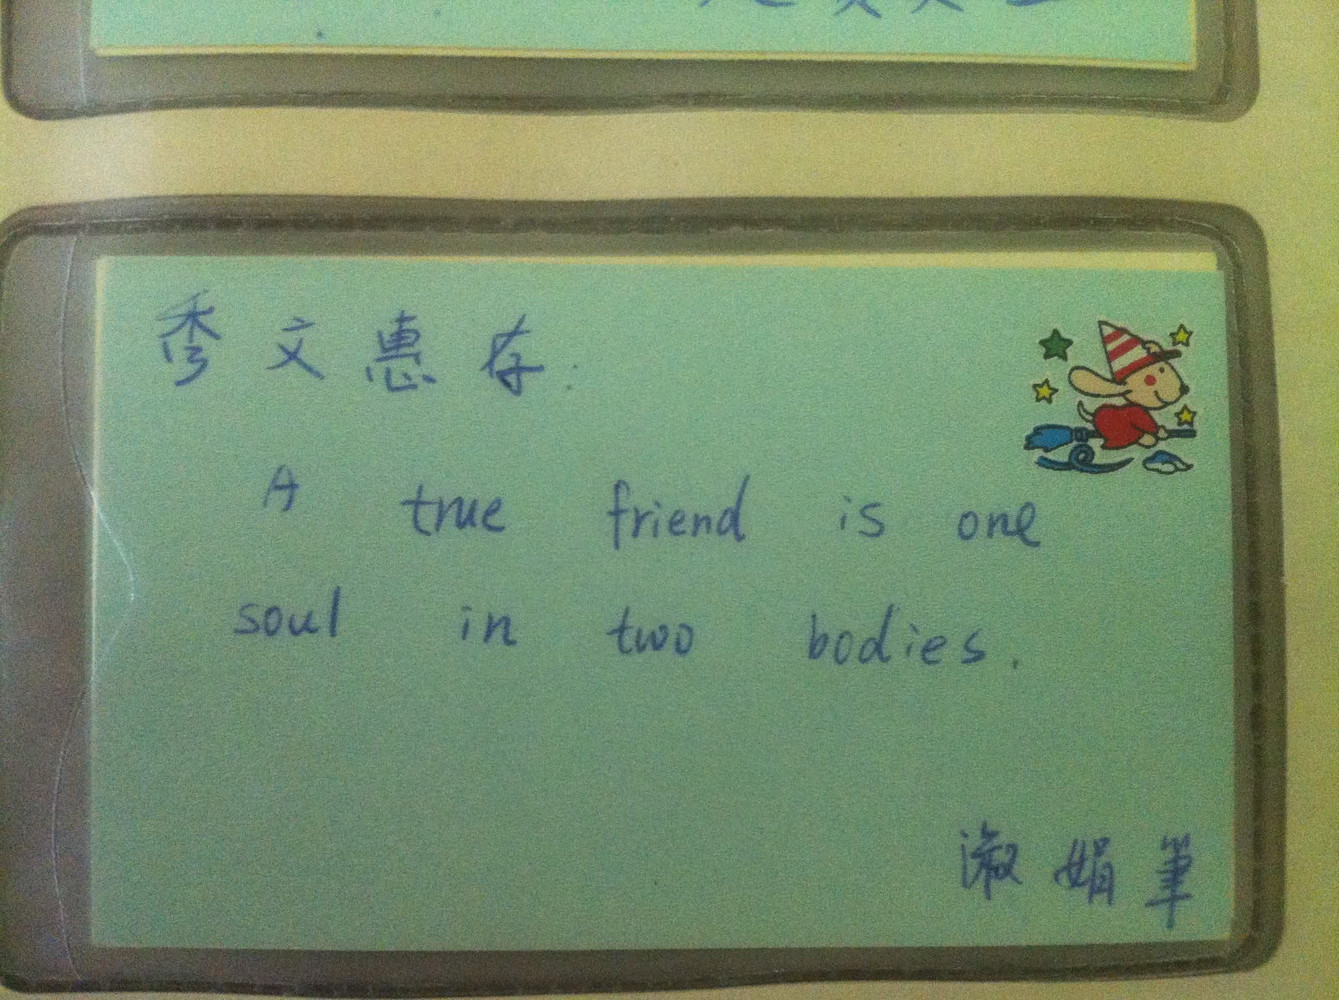 秀文惠存:
A true friend is one
soul in two bodies.
淑娟筆